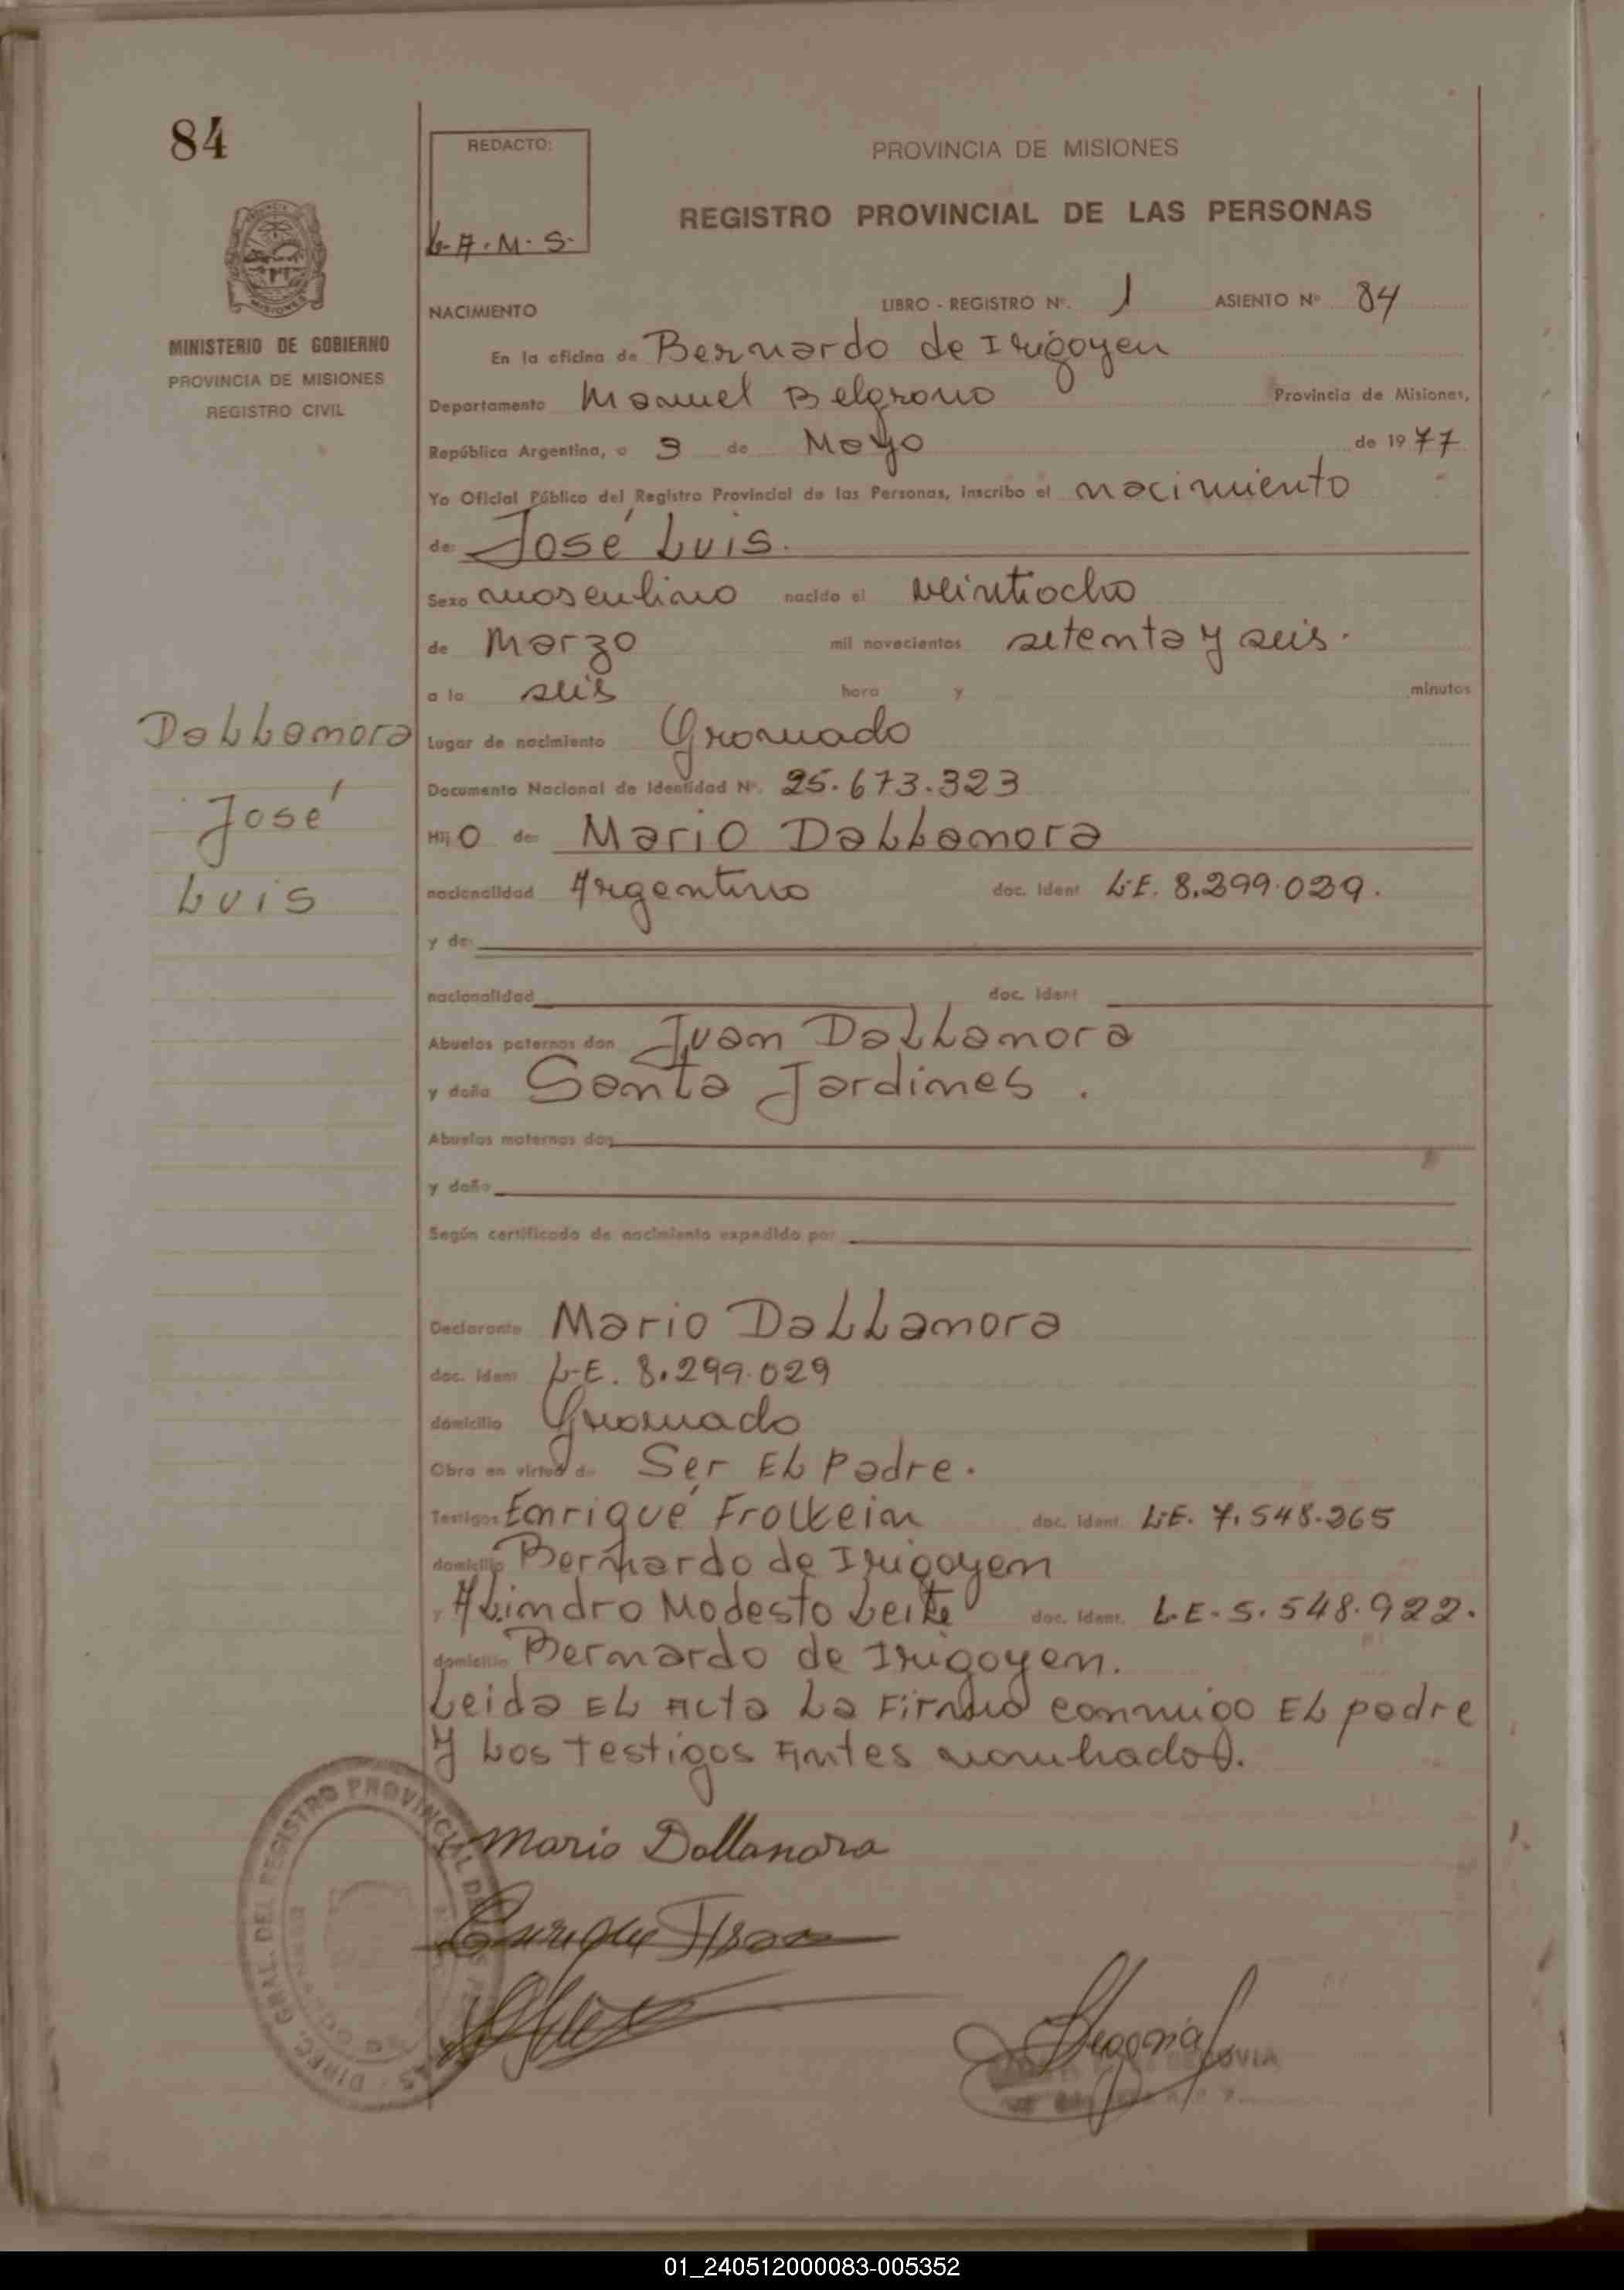 84
REDACTO:
L.A.M.S.
PROVINCIA DE MISIONES
REGISTRO PROVINCIAL DE LAS PERSONAS
MINISTERIO DE GOBIERNO
PROVINCIA DE MISIONES
REGISTRO CIVIL
NACIMIENTO LIBRO - REGISTRO Nº. 1 ASIENTO Nº 84
En la oficina de Bernardo de Irigoyen
Departamento Manuel Belgrano Provincia de Misiones,
República Argentina, a 3 de Mayo de 1977
Yo Oficial Público del Registro Provincial de las Personas, inscribo el nacimiento
de: José Luis.
Sexo masculino nacido el veintiocho
de Marzo mil novecientos setenta y seis.
a la seis hora y minutos
Dallamora
José
Luis
Lugar de nacimiento Gramado
Documento Nacional de Identidad Nº. 25.673.323
Hijo de: Mario Dallamora
nacionalidad Argentino doc. Ident L.E. 8.299.029.
y de:
nacionalidad doc. Ident
Abuelos paternos don Juan Dallamora
y doña Santa Jardines.
Abuelos maternos don
y doña
Según certificado de nacimiento expedido por
Declarante Mario Dallamora
doc. Ident L.E. 8.299.029
domicilio Gramado
Obra en virtud de Ser El Padre.
Testigos Enrique doc. Ident. L.E. 7.548.265
domicilio Bernardo de Irigoyen
y Alindro Modesto Leite doc. Ident. L.E. 5.548.922.
domicilio Bernardo de Irigoyen.
Leida El Acta La Firman conmigo El padre
y Los Testigos Antes nombrados.
DIREC. GRAL. DEL REGISTRO PROVINCIAL DE LAS
Mario Dallanora
Enrique
01_240512000083-005352